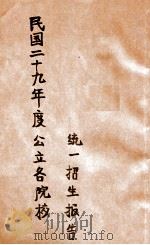 民国二十九年度公立各院校
统一招生报告